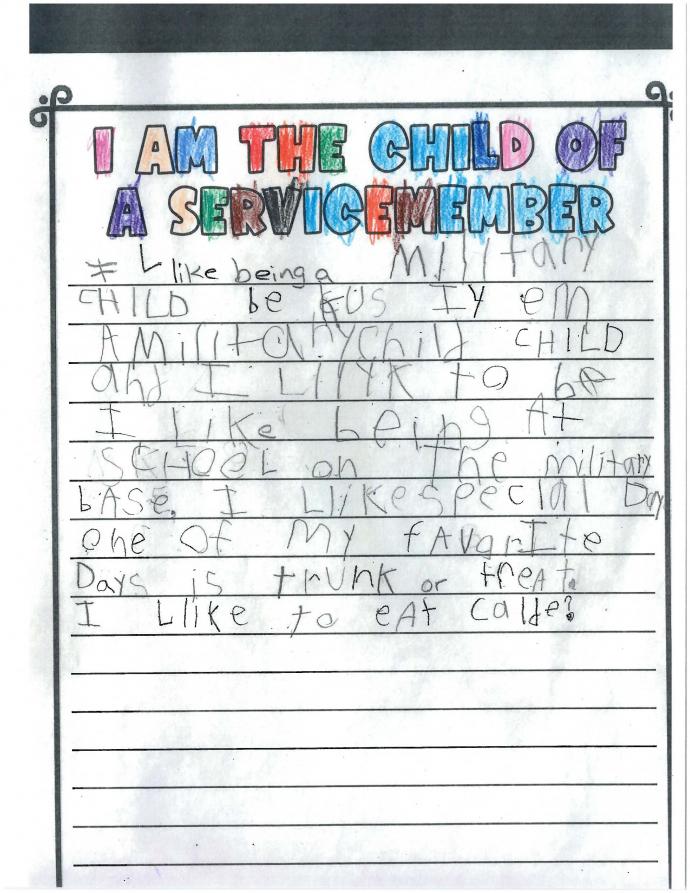 I AM THE CHILD OF
A SERVICEMEMBER
I like being a Military
CHILD be KUS Iy em
A Military Child CHILD
and I LIIYK to be
I Like being At
SCHOOL on The military
bASE. I LIikespecial Day
one Of My fAvorIte
Days is trUnk or treAt.
I Llike to eAt Calde?